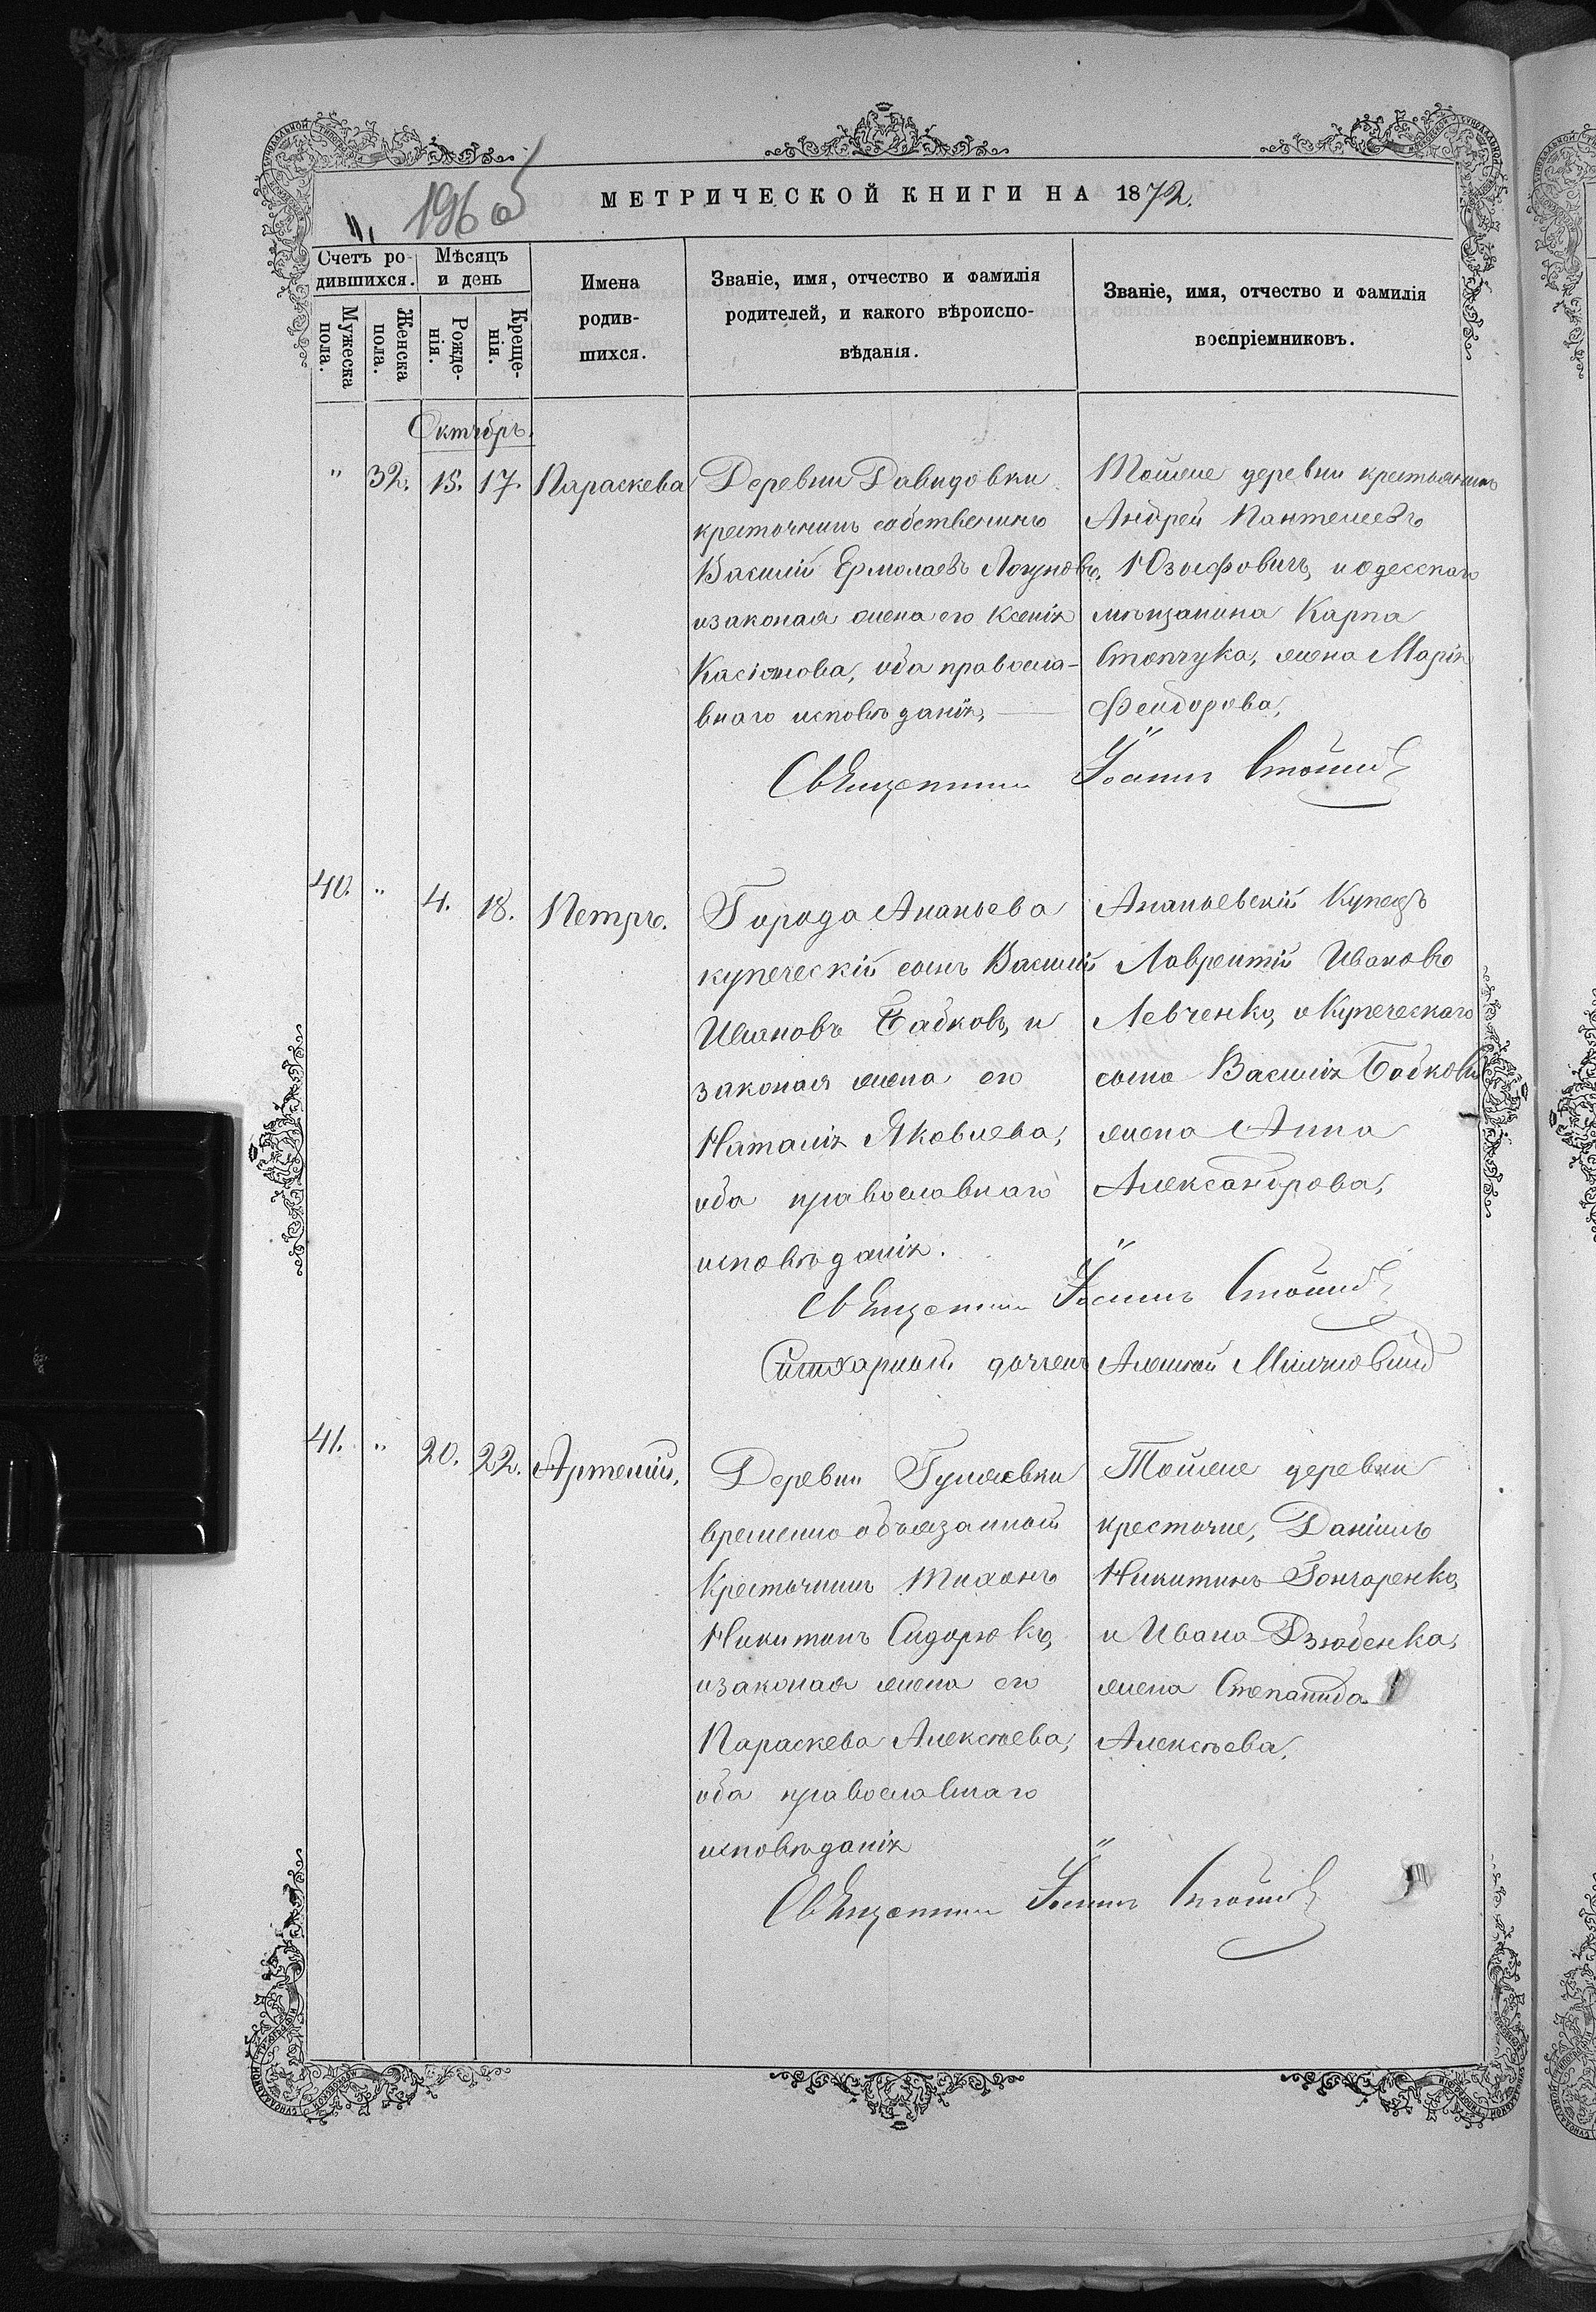 196 об
МЕТРИЧЕСКОЙ КНИГИ НА 1872.
Счетъ ро-
дившихся.
Мѣсяцъ
и день
Мужеска
пола.
Женска
пола.
Рожде-
нія.
Креще-
нія.
Имена
родив-
шихся.
Званіе, имя, отчество и фамилія
родителей, и какого вѣроиспо-
вѣданія.
Званіе, имя, отчество и фамилія
воспріемниковъ.
Октябрь.
" 32. 15. 17. Параскева
Деревни Давидовки
крестьянинъ собственникъ
Василій Ермолаевъ Логуновъ,
и законая жена его Ксенія
Касіянова, оба правосла-
внаго исповѣданія,
Тойже деревни крестьянинъ
Андрей Пантелеевъ
Юзифовичъ, и одесскаго
мѣщанина Карпа
жена Марія
Феодорова,
Священникъ Іоаннъ
40. " 4. 18. Петръ.
Города Ананьева
купеческій сынъ Василій
Ивановъ Бабковъ, и
законая жена его
Наталія Яковлева,
оба православнаго
исповѣданія.
Ананьевскій Купецъ
Лаврентій Ивановъ
Левченко, и Купеческаго
сына Василія Бабкова
жена Анна
Александрова,
Священникъ Іоаннъ
41. " 20. 22. Артемій.
Деревни
временно обязанной
Крестьянинъ Тихонъ
Никитинъ Сидорюкъ,
и законая жена его
Параскева Алексѣева,
оба православнаго
исповѣданія
Тойже деревни
крестьяне, Даніилъ
Никитинъ Гончаренко,
и Ивана Дзюбенка,
жена Степанида
Алексѣева.
Священникъ Іоаннъ